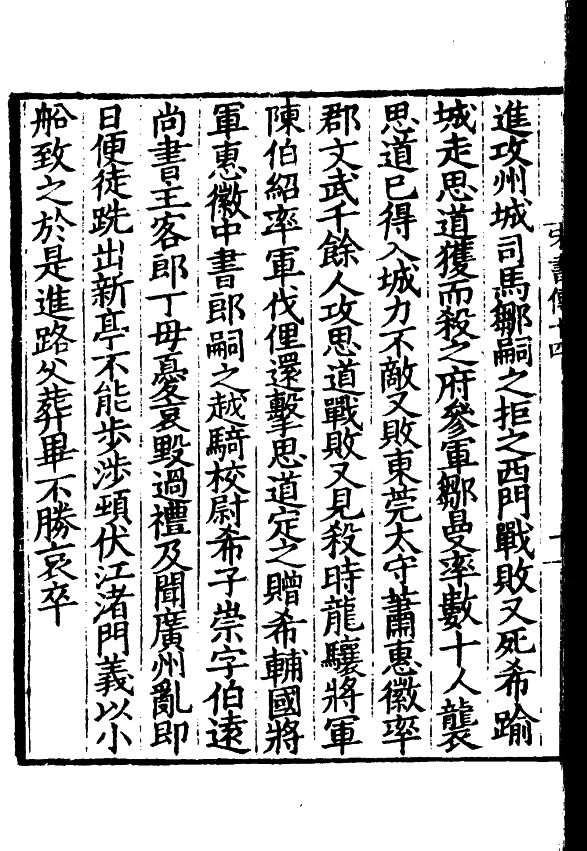 進攻州城司馬鄒嗣之拒之西門戰敗又死希踰
城走思道獲而殺之府參軍鄒曼率數十人襲
思道已得入城力不敵又敗東莞太守蕭惠徽率
郡文武千餘人攻思道戰敗又見殺時龍驤將軍
陳伯紹率軍伐俚還擊思道定之贈希輔國將
軍惠徽中書郎嗣之越騎校尉希子崇字伯遠
尚書主客郎丁母憂哀毀過禮及聞廣州亂即
日便徒跣出新亭不能步涉頓伏江渚門義以小
船致之於是進路父葬畢不勝哀卒